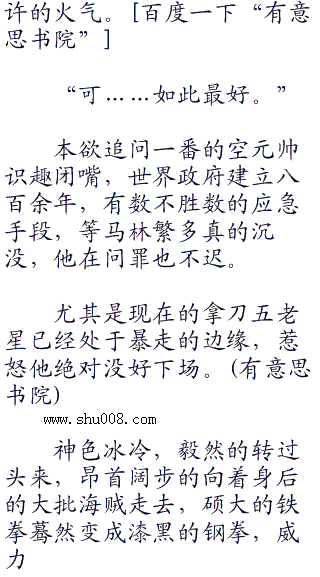 许的火气。[百度一下“有意
思书院”]
“可……如此最好。”
本欲追问一番的空元帅
识趣闭嘴，世界政府建立八
百余年，有数不胜数的应急
手段，等马林繁多真的沉
没，他在问罪也不迟。
尤其是现在的拿刀五老
星已经处于暴走的边缘，惹
怒他绝对没好下场。(有意思
书院)
www.shu008.com
神色冰冷，毅然的转过
头来，昂首阔步的向着身后
的大批海贼走去，硕大的铁
拳蓦然变成漆黑的钢拳，威
力